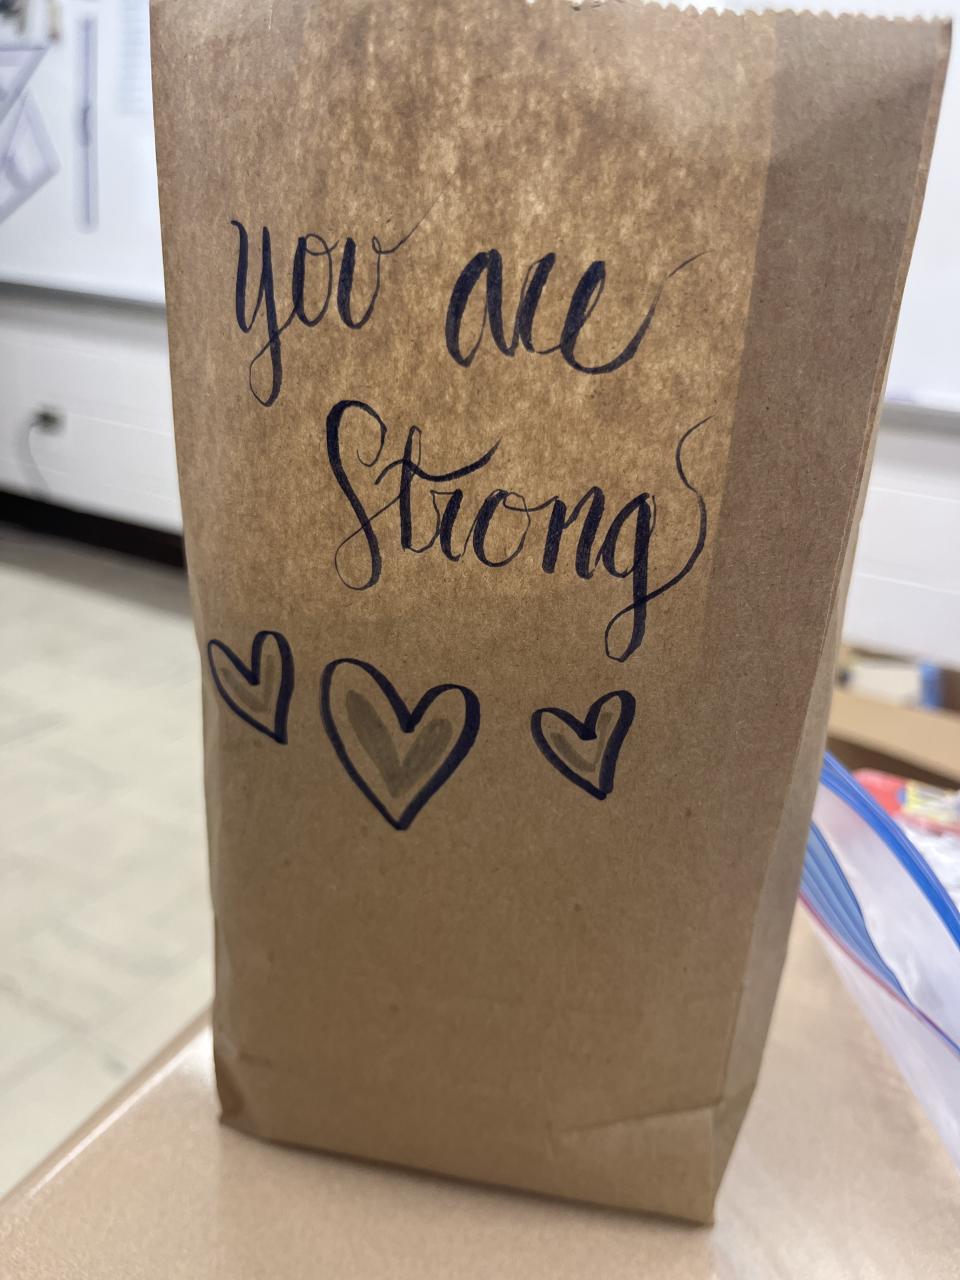 you are
Strong